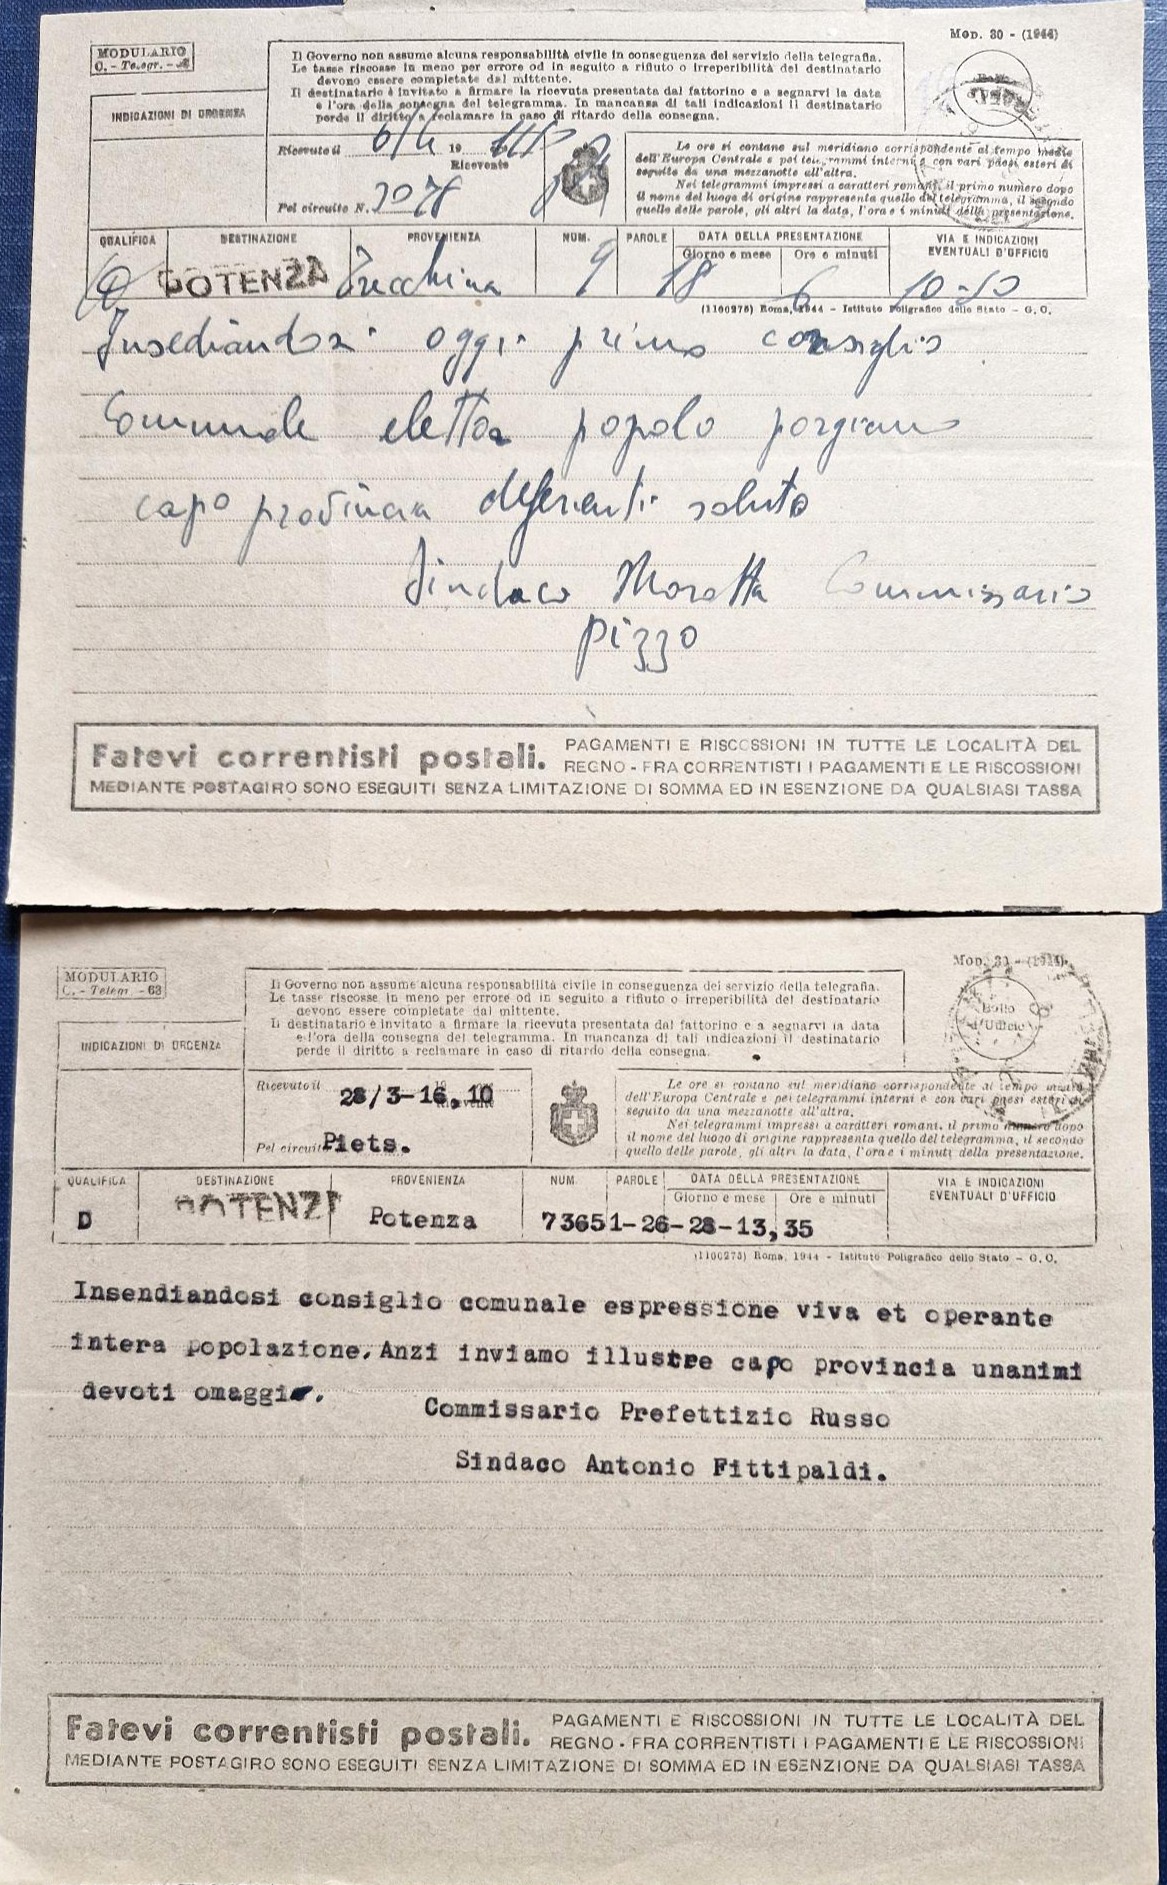 Mod. 30 - (1944)
MODULARIO
C. - Telegr. -
INDICAZIONI DI URGENZA
Il Governo non assume alcuna responsabilità civile in conseguenza del servizio della telegrafia.
Le tasse riscosse in meno per errore od in seguito a rifiuto o irreperibilità del destinatario
devono essere completate dal mittente.
Il destinatario è invitato a firmare la ricevuta presentata dal fattorino e a segnarvi la data
e l'ora della consegna del telegramma. In mancanza di tali indicazioni il destinatario
perde il diritto a reclamare in caso di ritardo della consegna.
Ricevuto il 6/4 19
Ricevente
Pel circuito N.
Le ore si contano sul meridiano corrispondente al tempo medio
dell'Europa Centrale e pei telegrammi interni e con vari paesi esteri di
seguito da una mezzanotte all'altra.
Nei telegrammi impressi a caratteri romani, il primo numero dopo
il nome del luogo di origine rappresenta quello del telegramma, il secondo
quello delle parole, gli altri la data, l'ora e i minuti della presentazione.
QUALIFICA DESTINAZIONE PROVENIENZA NUM. PAROLE DATA DELLA PRESENTAZIONE VIA E INDICAZIONI
Giorno e mese Ore e minuti EVENTUALI D'UFFICIO
POTENZA Trecchina 9 18 6 10-50
(1100275) Roma, 1944 - Istituto Poligrafico dello Stato - G. C.
Insediandosi oggi primo consiglio
Comunale eletto popolo porgiamo
capo provincia deferenti saluto
Sindaco Moretta Commissario
Pizzo
Fatevi correntisti postali. PAGAMENTI E RISCOSSIONI IN TUTTE LE LOCALITÀ DEL
REGNO - FRA CORRENTISTI I PAGAMENTI E LE RISCOSSIONI
MEDIANTE POSTAGIRO SONO ESEGUITI SENZA LIMITAZIONE DI SOMMA ED IN ESENZIONE DA QUALSIASI TASSA
Mod. 30 - (1944)
MODULARIO
C. - Telegr. - 63
Bollo
d'Ufficio
INDICAZIONI DI URGENZA
Il Governo non assume alcuna responsabilità civile in conseguenza del servizio della telegrafia.
Le tasse riscosse in meno per errore od in seguito a rifiuto o irreperibilità del destinatario
devono essere completate dal mittente.
Il destinatario è invitato a firmare la ricevuta presentata dal fattorino e a segnarvi la data
e l'ora della consegna del telegramma. In mancanza di tali indicazioni il destinatario
perde il diritto a reclamare in caso di ritardo della consegna.
Ricevuto il 28/3-16,10
Ricevente
Pel circuit Piets.
Le ore si contano sul meridiano corrispondente al tempo medio
dell'Europa Centrale e pei telegrammi interni e con vari paesi esteri di
seguito da una mezzanotte all'altra.
Nei telegrammi impressi a caratteri romani, il primo numero dopo
il nome del luogo di origine rappresenta quello del telegramma, il secondo
quello delle parole, gli altri la data, l'ora e i minuti della presentazione.
QUALIFICA DESTINAZIONE PROVENIENZA NUM. PAROLE DATA DELLA PRESENTAZIONE VIA E INDICAZIONI
Giorno e mese Ore e minuti EVENTUALI D'UFFICIO
D POTENZA Potenza 73651-26-28-13,35
(1100275) Roma, 1944 - Istituto Poligrafico dello Stato - G. C.
Insendiandosi consiglio comunale espressione viva et operante
intera popolazione. Anzi inviamo illustre capo provincia unanimi
devoti omaggi.
Commissario Prefettizio Russo
Sindaco Antonio Fittipaldi.
Fatevi correntisti postali. PAGAMENTI E RISCOSSIONI IN TUTTE LE LOCALITÀ DEL
REGNO - FRA CORRENTISTI I PAGAMENTI E LE RISCOSSIONI
MEDIANTE POSTAGIRO SONO ESEGUITI SENZA LIMITAZIONE DI SOMMA ED IN ESENZIONE DA QUALSIASI TASSA